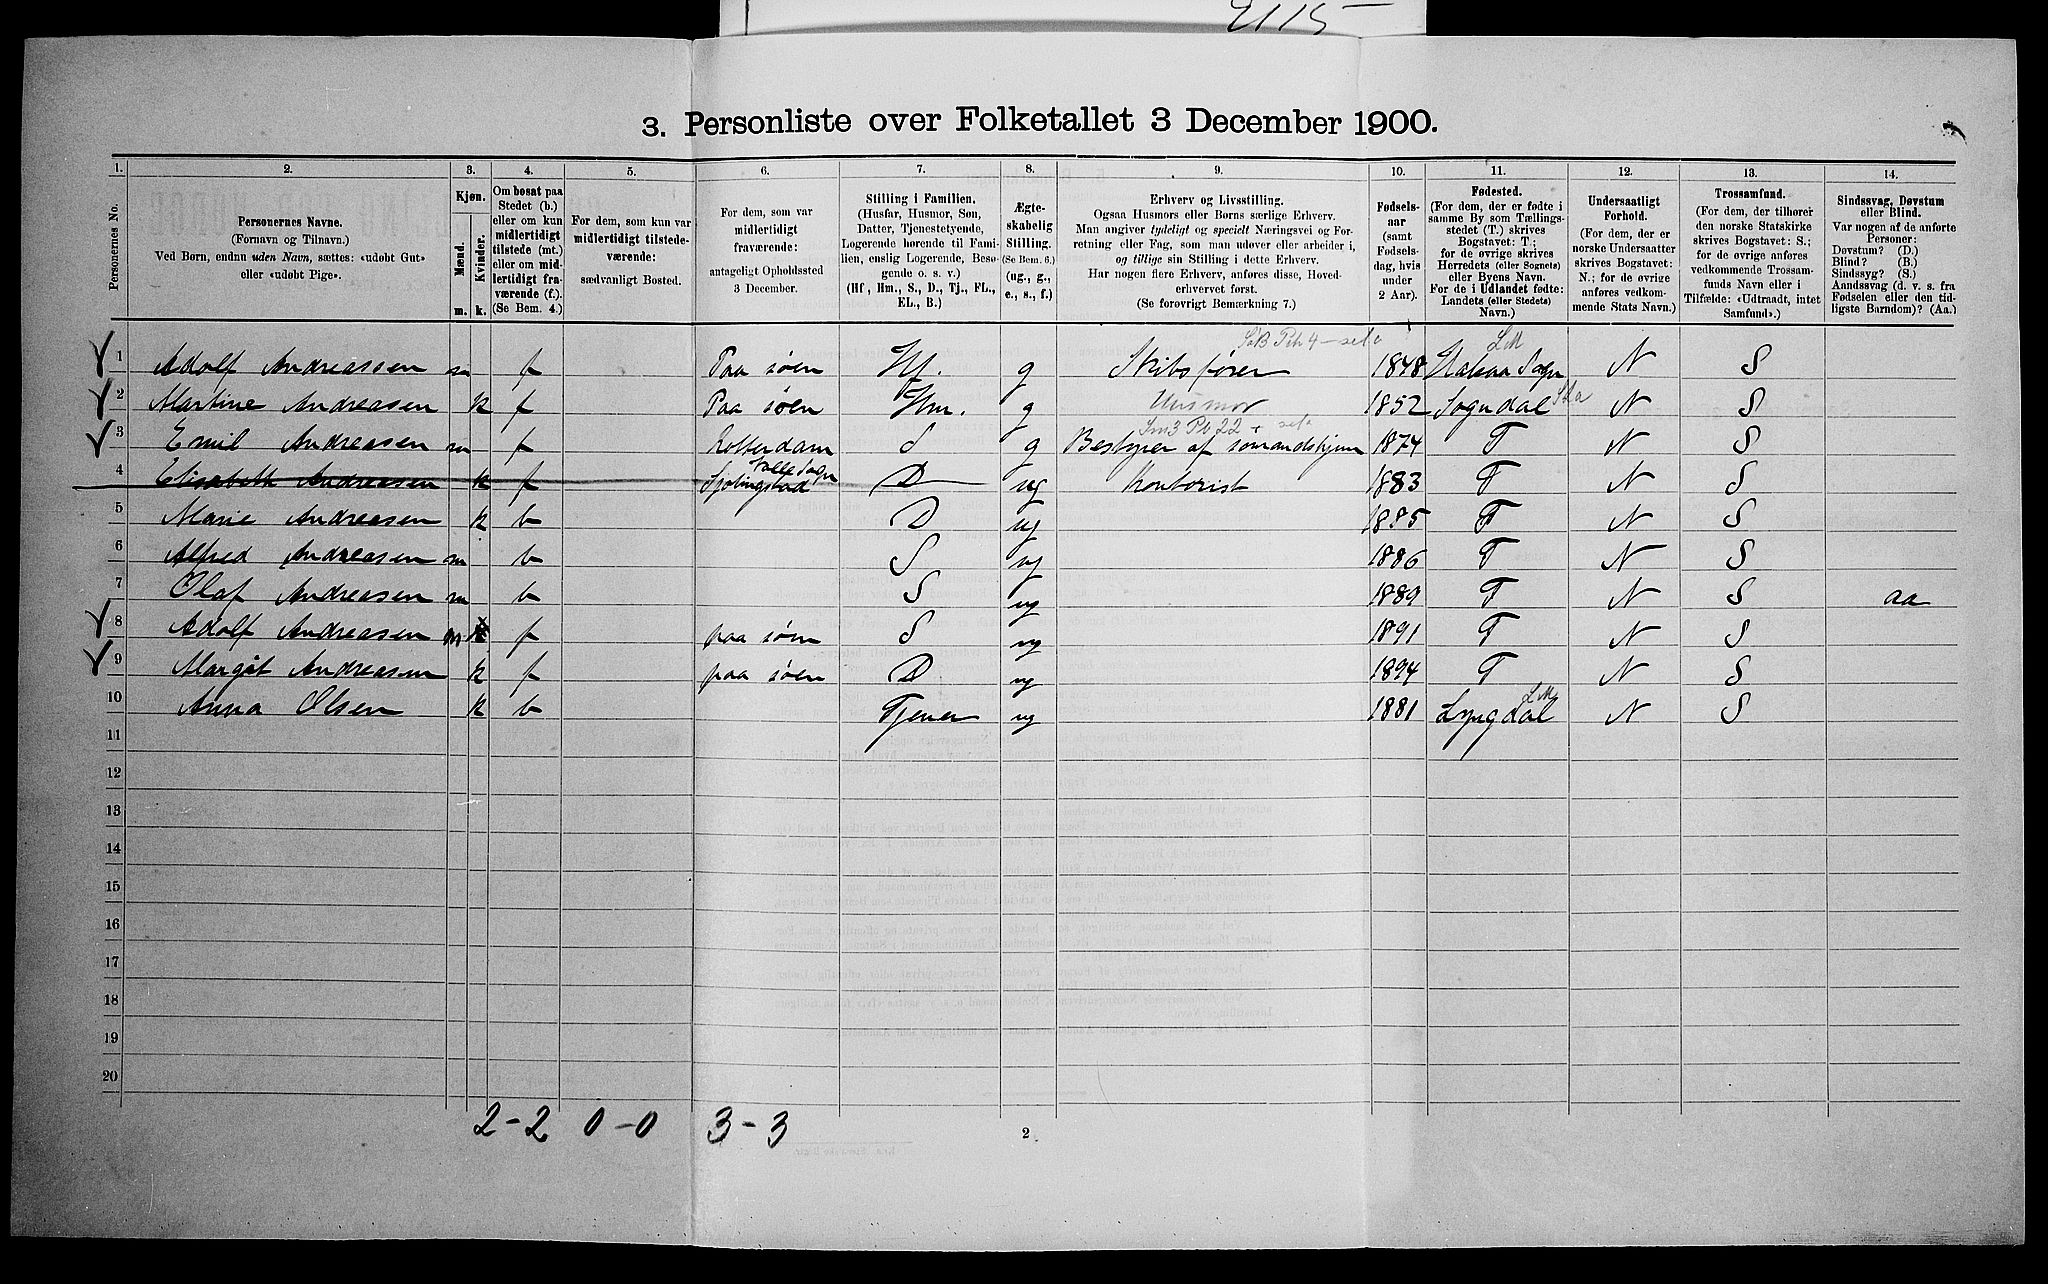 3. Personliste over Folketallet 3 December 1900.
1. 2. 3. 4. 5. 6. 7. 8. 9. 10. 11. 12. 13. 14.
Personernes No.
Personernes Navne.
(Fornavn og Tilnavn.)
Ved Børn, endnu uden Navn, sættes: «udøbt Gut»
eller «udøbt Pige».
Kjøn.
Mænd. Kvinder.
m. k.
Om bosat paa
Stedet (b.)
eller om kun
midlertidigt
tilstede (mt.)
eller om mid-
lertidigt fra-
værende (f.)
(Se Bem. 4.)
For dem, som kun var
midlertidigt tilstede-
værende:
sædvanligt Bosted.
For dem, som var
midlertidigt
fraværende:
antageligt Opholdssted
3 December.
Stilling i Familien.
(Husfar, Husmor, Søn,
Datter, Tjenestetyende,
Logerende hørende til Fami-
lien, enslig Logerende, Besø-
gende o. s. v.)
(Hf, Hm., S., D., Tj., FL.,
EL., B.)
Ægte-
skabelig
Stilling.
(Se Bem. 6.)
(ug., g.,
e., s., f.)
Erhverv og Livsstilling.
Ogsaa Husmors eller Børns særlige Erhverv.
Man angiver tydeligt og specielt Næringsvei og For-
retning eller Fag, som man udover eller arbeider i,
og tillige sin Stilling i dette Erhverv.
Har nogen flere Erhverv, anføres disse, Hoved-
erhvervet først.
(Se forøvrigt Bemærkning 7.)
Fødsels-
aar
(samt
Fødsels-
dag, hvis
under
2 Aar).
Fødested.
(For dem, der er fødte i
samme By som Tællings-
stedet (T.) skrives
Bogstavet: T.;
for de øvrige skrives
Herredets (eller Sognets)
eller Byens Navn.
For de i Udlandet fødte:
Landets (eller Stedets)
Navn.)
Undersaatligt
Forhold.
(For dem, der er
norske Undersaatter
skrives Bogstavet:
N.; for de øvrige
anføres vedkom-
mende Stats Navn.)
Trossamfund.
(For dem, der tilhører
den norske Statskirke
skrives Bogstavet: S.;
for de øvrige anføres
vedkommende Trossam-
funds Navn eller i
Tilfælde: «Udtraadt, intet
Samfund».)
Sindssvag, Døvstum
eller Blind.
Var nogen af de anførte
Personer:
Døvstum? (D.)
Blind? (B.)
Sindssyg? (S.)
Aandssvag (d. v. s. fra
Fødselen eller den tid-
ligste Barndom)? (Aa.)
1 Adolf Andreassen m f Paa søen Hf. g Skibsfører 1848 Halsaa Sogn LM N S
2 Martine Andreasen k f Paa søen Hm. g Husmor 1852 Sogndal Sta N S
3 Emil Andreasen m f Rotterdam S g Bestyrer af sømandshjem 1874 T N S
4 Elisabeth Andreasen k f D ug Kontorist 1883 T N S
5 Marie Andreasen k b D ug 1885 T N S
6 Alfred Andreasen m b S ug 1886 T N S
7 Olaf Andreasen m b S ug 1889 T N S aa
8 Adolf Andreasen m f paa søen S ug 1891 T N S
9 Margit Andreasen k f paa søen D ug 1894 T N S
10 Anna Olsen k b Tjener ug 1881 Lyngdal LM N S
11
12
13
14
15
16
17
18
19
20
2-2 0-0 3-3
2